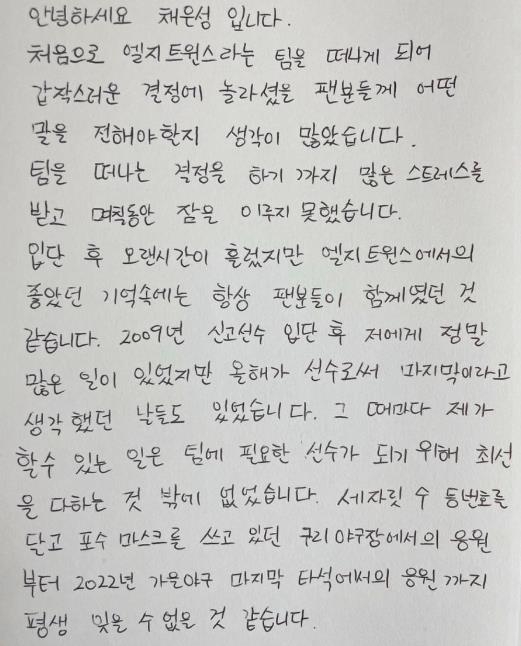 안녕하세요 채은성 입니다.
처음으로 엘지트윈스라는 팀을 떠나게 되어
갑작스러운 결정에 놀라셨을 팬분들께 어떤
말을 전해야할지 생각이 많았습니다.
팀을 떠나는 결정을 하기 까지 많은 스트레스를
받고 며칠동안 잠을 이루지 못했습니다.
입단 후 오랜시간이 흘렀지만 엘지트윈스에서의
좋았던 기억속에는 항상 팬분들이 함께였던 것
같습니다. 2009년 신고선수 입단 후 저에게 정말
많은 일이 있었지만 올해가 선수로써 마지막이라고
생각했던 날들도 있었습니다. 그 때마다 제가
할수 있는 일은 팀에 필요한 선수가 되기 위해 최선
을 다하는 것 밖에 없었습니다. 세자릿 수 등번호를
달고 포수 마스크를 쓰고 있던 구리야구장에서의 응원
부터 2022년 가을야구 마지막 타석에서의 응원까지
평생 잊을 수 없을 것 같습니다.